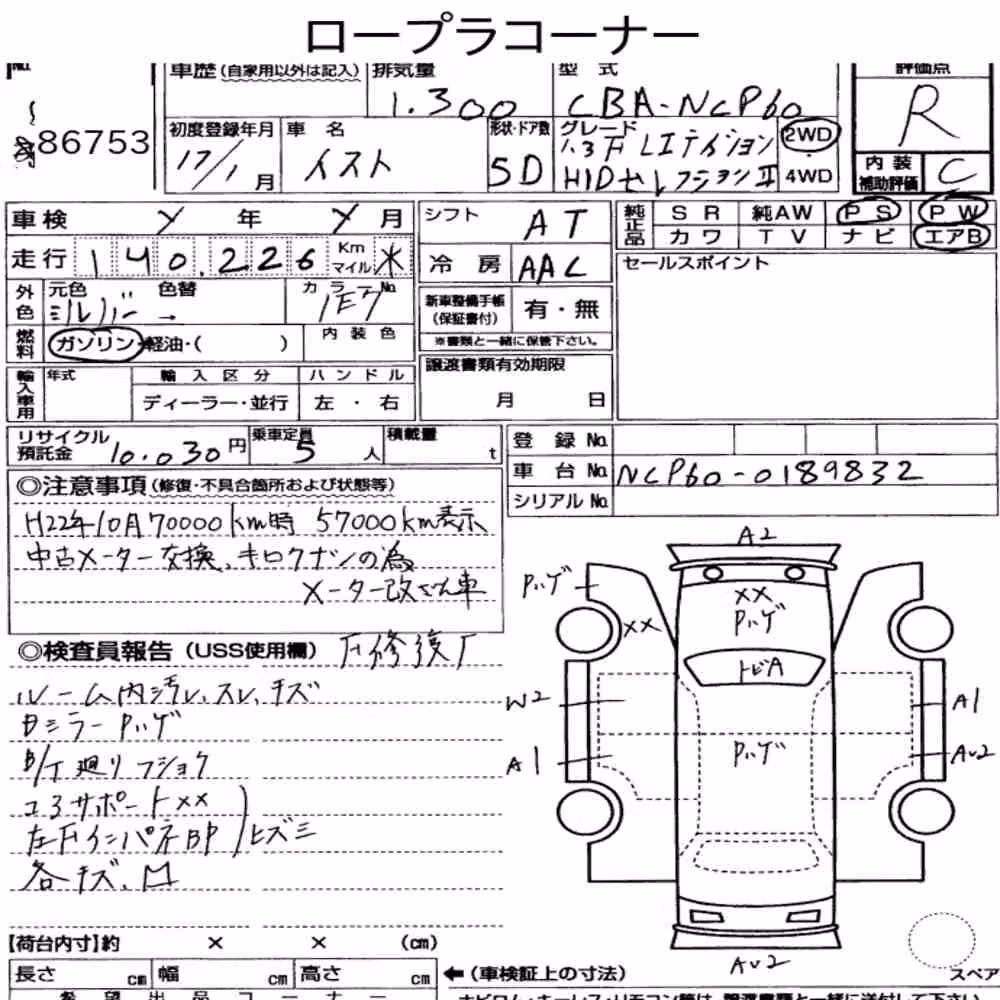 ロープラコーナー
No.
86753
車歴 (自家用以外は記入)
排気量
1.300
型 式
CBA-NCP60
評価点
R
内装
補助評価
C
初度登録年月
17/1月
車 名
イスト
形状・ドア数
5D
グレード
1.3F Lエディション
HIDセレクションⅡ
2WD
4WD
車検 年 月
走行 140.226 Km マイル
外色 元色 色替 カラーNo.
シルバー 1E7
燃料 ガソリン・軽油・( )
内装色
輸入車用 年式 輸入区分 ハンドル
ディーラー・並行 左・右
シフト AT
冷房 AAC
新車整備手帳 (保証書付) 有・無
※書類と一緒に保管下さい。
譲渡書類有効期限
月 日
純正品 SR 純AW PS PW
カワ TV ナビ エアB
セールスポイント
リサイクル預託金 10.030円
乗車定員 5人
積載量 t
登録No.
車台No. NCP60-0189832
シリアルNo.
◎注意事項 (修復・不具合箇所および状態等)
H22年10月70000km時 57000km表示
中古メーター交換、キロクナシの為
メーター改ざん車
◎検査員報告 (USS使用欄) F修復厂
ルーム内汚レ、スレ、キズ
Bミラー Pハゲ
B/T廻り フショク
コアサポートXX
左FインパネBP ヒズミ
各キズ、凹
A2
Pハゲ
XX
XX
Pハゲ
トビA
W2
A1
A1
Pハゲ
AU2
AU2
スペア
【荷台内寸】約 × × (cm)
長さ cm 幅 cm 高さ cm
←(車検証上の寸法)
希望出品コーナー
ナビロム・キーレス・リモコン等は、譲渡書類と一緒に送付して下さい